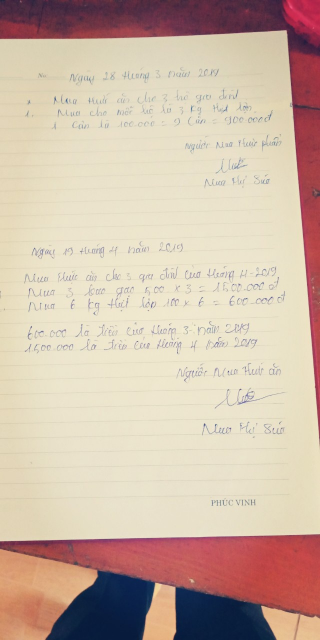 No.
Ngày 28 tháng 3 năm 2019
Mua thức ăn cho 3 hộ gia đình
1. Mua cho mỗi hộ là 3 kg thịt lợn
1 cân là 100.000 = 9 cân = 900.000đ
Người mua thức phẩm
Mua Mý Súa
Ngày 19 tháng 4 năm 2019
Mua thức ăn cho 3 gia đình của tháng 4-2019
Mua 3 bao gạo 500 x 3 = 1.500.000đ
Mua 6 kg thịt lợn 100 x 6 = 600.000đ
600.000 là tiền của tháng 3 năm 2019
1500.000 là tiền của tháng 4 năm 2019
Người mua thức ăn
Mua Mý Súa
PHÚC VINH